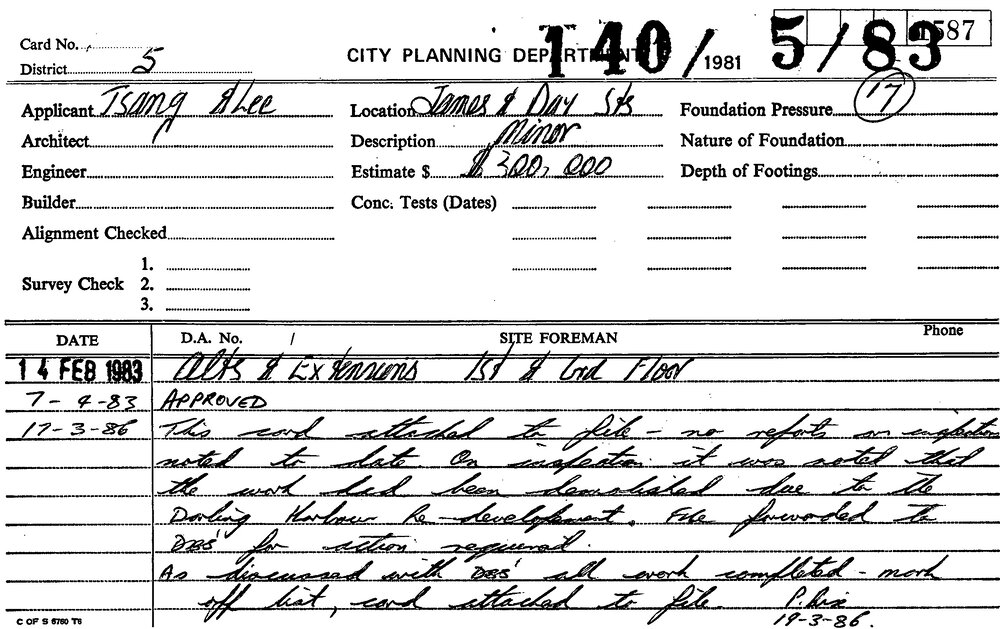 Card No.
140/1981 5/83 1587
CITY PLANNING DEPARTMENT
District 5
Applicant Tsang & Lee Location James & Day Sts Foundation Pressure 17
Architect Description Minor Nature of Foundation
Engineer Estimate $ $300,000 Depth of Footings
Builder Conc. Tests (Dates)
Alignment Checked
1.
Survey Check 2.
3.
DATE D.A. No. / SITE FOREMAN Phone
14 FEB 1983 Alts & Extensions 1st & Grd Floor
7-4-83 APPROVED
17-3-86 This card attached to file - no reports or inspections
noted to date. On inspection it was noted that
the work had been demolished due to the
Darling Harbour Re-development. File forwarded to
DBS' for action required.
As discussed with DBS' all work completed - mark
off list, card attached to file. P.
19-3-86.
C OF S 6760 T6